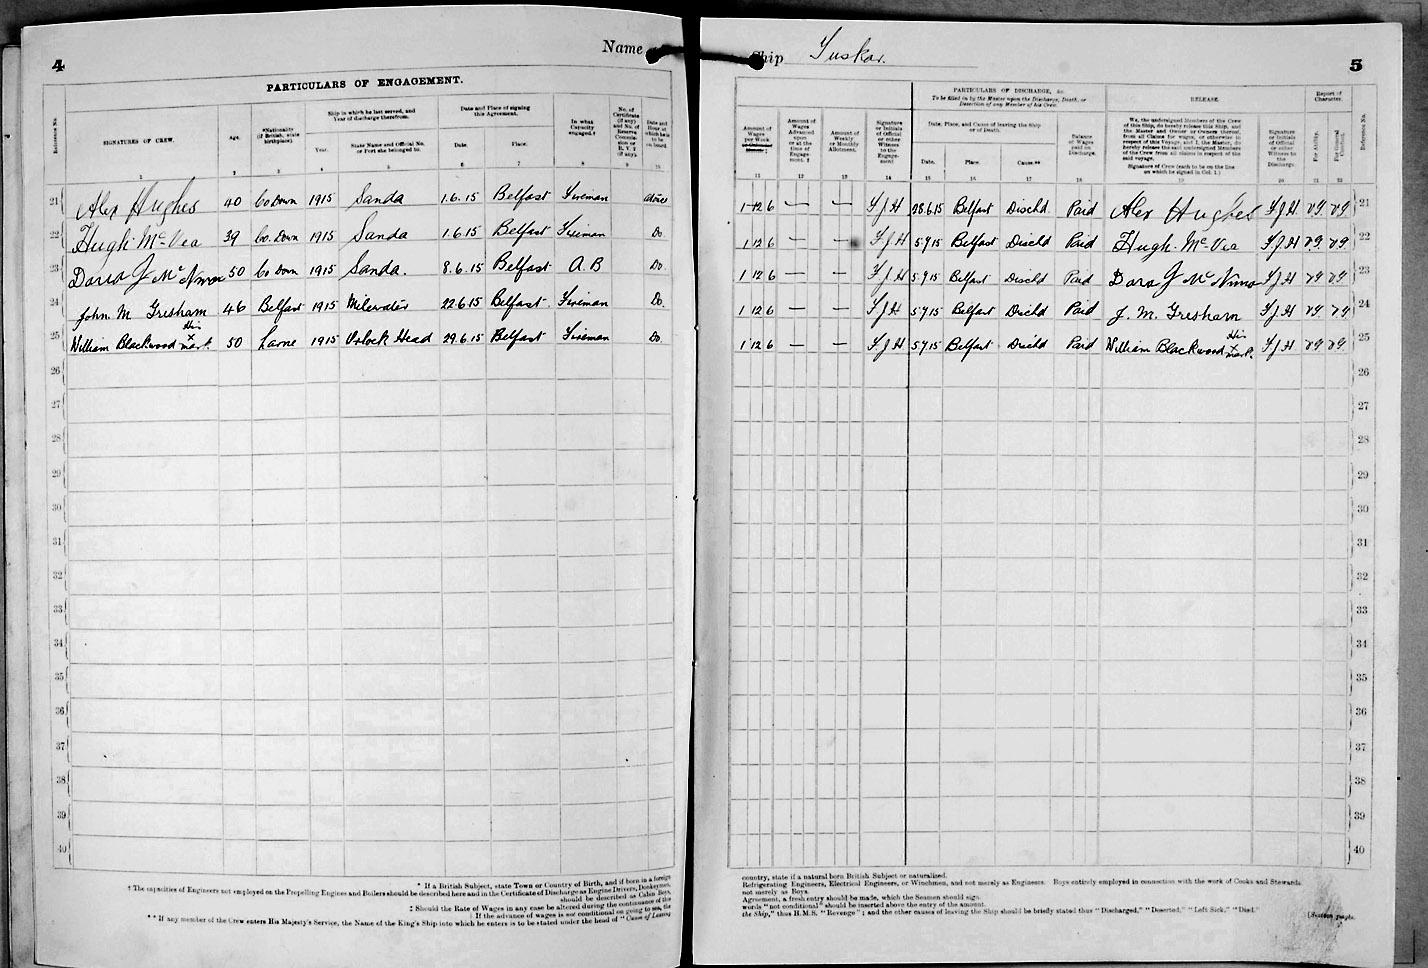 4
Name
PARTICULARS OF ENGAGEMENT.
Reference No.
SIGNATURES OF CREW.
Age.
*Nationality (if British, state birthplace).
Ship in which he last served, and Year of discharge therefrom.
Year.
State Name and Official No. or Port she belonged to.
Date and Place of signing this Agreement.
Date.
Place.
In what Capacity engaged.†
No. of Certificate (if any) and No. of Reserve Commission or R.V.2 (if any).
Date and Hour at which he is to be on board.
1 2 3 4 5 6 7 8 9 10
21 Alex Hughes 40 Co Down 1915 Sanda 1.6.15 Belfast Fireman
22 Hugh McVea 39 Co. Down 1915 Sanda 1.6.15 Belfast Fireman Do
23 David J Mc Nimon 50 Co Down 1915 Sanda. 8.6.15 Belfast A.B Do
24 John M Gresham 46 Belfast 1915 Milewater 22.6.15 Belfast Fireman Do.
25 William Blackwood His x mark. 50 Larne 1915 Orlock Head 29.6.15 Belfast Fireman Do.
26
27
28
29
30
31
32
33
34
35
36
37
38
39
40
* If a British Subject, state Town or Country of Birth, and if born in a foreign
† The capacities of Engineers not employed on the Propelling Engines and Boilers should be described here and in the Certificate of Discharge as Engine Drivers, Donkeymen,
should be described as Cabin Boys,
‡ Should the Rate of Wages in any case be altered during the continuance of this
| If the advance of wages is not conditional on going to sea, the
** If any member of the Crew enters His Majesty's Service, the Name of the King's Ship into which he enters is to be stated under the head of "Cause of Leaving
Ship Tuskar.
5
PARTICULARS OF DISCHARGE, &c.
To be filled in by the Master upon the Discharge, Death, or Desertion of any Member of his Crew.
RELEASE.
Report of Character.
Amount of Wages per Week or Calendar Month.‡
Amount of Wages Advanced upon or at the time of Engagement. ‡
Amount of Weekly or Monthly Allotment.
Signature or Initials of Official or other Witness to the Engagement
Date, Place, and Cause of leaving the Ship or of Death.
Date.
Place.
Cause.**
Balance of Wages paid on Discharge.
We, the undersigned Members of the Crew of this Ship, do hereby release this Ship, and the Master and Owner or Owners thereof, from all Claims for wages, or otherwise in respect of this Voyage, and I, the Master, do hereby release the said undersigned Members of the Crew from all claims in respect of the said voyage.
Signature of Crew (each to be on the line on which he signed in Col. 1.)
Signature or Initials of Official or other Witness to the Discharge.
For Ability.
For General Conduct.
Reference No.
11 12 13 14 15 16 17 18 19 20 21 22
1 12 6 — — F J H 28.6.15 Belfast Dischd Paid Alex Hughes F J H. V.G. V.G. 21
1 12 6 — — F J H 5.7.15 Belfast Dischd Paid Hugh McVea F J H V.G. V.G. 22
1 12 6 — — F J H 5.7.15 Belfast Dischd Paid David J Mc Nimon F J H V.G. V.G. 23
1 12 6 — — F J H 5.7.15 Belfast Dischd Paid J. M. Gresham F J H V.G. V.G. 24
1 12 6 — — F J H 5.7.15 Belfast Dischd Paid William Blackwood His x mark. F J H V.G. V.G. 25
26
27
28
29
30
31
32
33
34
35
36
37
38
39
40
country, state if a natural born British Subject or naturalized.
Refrigerating Engineers, Electrical Engineers, or Winchmen, and not merely as Engineers. Boys entirely employed in connection with the work of Cooks and Stewards
not merely as Boys.
Agreement, a fresh entry should be made, which the Seamen should sign.
words "not conditional" should be inserted above the entry of the amount.
the Ship," thus H.M.S. "Revenge"; and the other causes of leaving the Ship should be briefly stated thus "Discharged," "Deserted," "Left Sick," "Died."
[Sixteen pages.